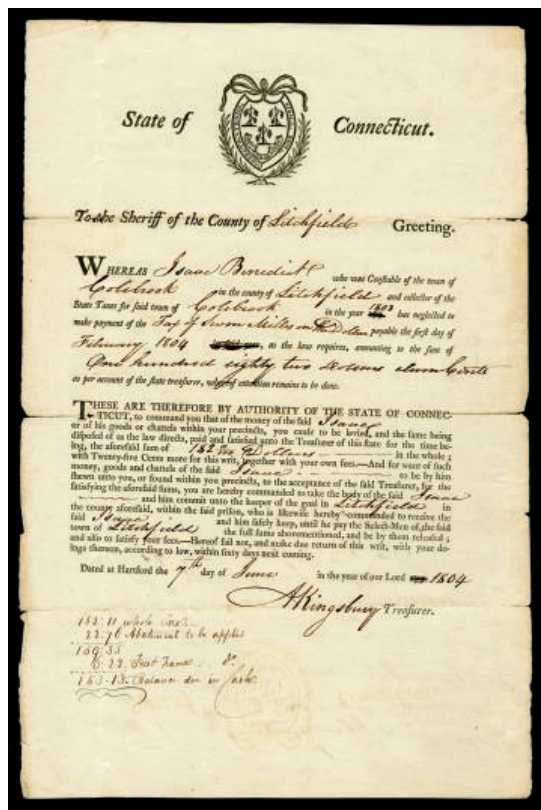 State of Connecticut.
To the Sheriff of the County of Litchfield Greeting.
WHEREAS Isaac Benedict who was Constable of the town of
Colebrook in the county of Litchfield and collector of the
State Taxes for said town of Colebrook in the year 1803 has neglected to
make payment of the Tax of Seven Mills on the Dollar payable the first day of
February 1804 as the law requires, amounting to the sum of
One hundred eighty two dollars eleven Cents
as per account of the state treasurer, whereof execution remains to be done.
THESE ARE THEREFORE BY AUTHORITY OF THE STATE OF CONNEC-
TICUT, to command you that of the money of the said Isaac
or of his goods or chattels within your precincts, you cause to be levied, and the same being
disposed of as the law directs, paid and satisfied unto the Treasurer of this state for the time be-
ing, the aforesaid sum of 182 Dollars in the whole;
with Twenty-five Cents more for this writ, together with your own fees.—And for want of such
money, goods and chattels of the said Isaac to be by him
shewn unto you, or found within your precincts, to the acceptance of the said Treasurer, for the
satisfying the aforesaid sums, you are hereby commanded to take the body of the said Isaac
and him commit unto the keeper of the goal in Litchfield in
the county aforesaid, within the said prison, who is likewise hereby commanded to receive the
said Isaac and him safely keep, until he pay the Select-Men of the said
town of Litchfield the full sums abovementioned, and be by them released;
and also to satisfy your fees.—Hereof fail not, and make due return of this writ, with your do-
ings thereon, according to law, within sixty days next coming.
Dated at Hartford the 7th day of June in the year of our Lord 1804
AKingsbury Treasurer.
182.11 whole
22.76 Abatement to be applied
159.35

Balance due in Cash